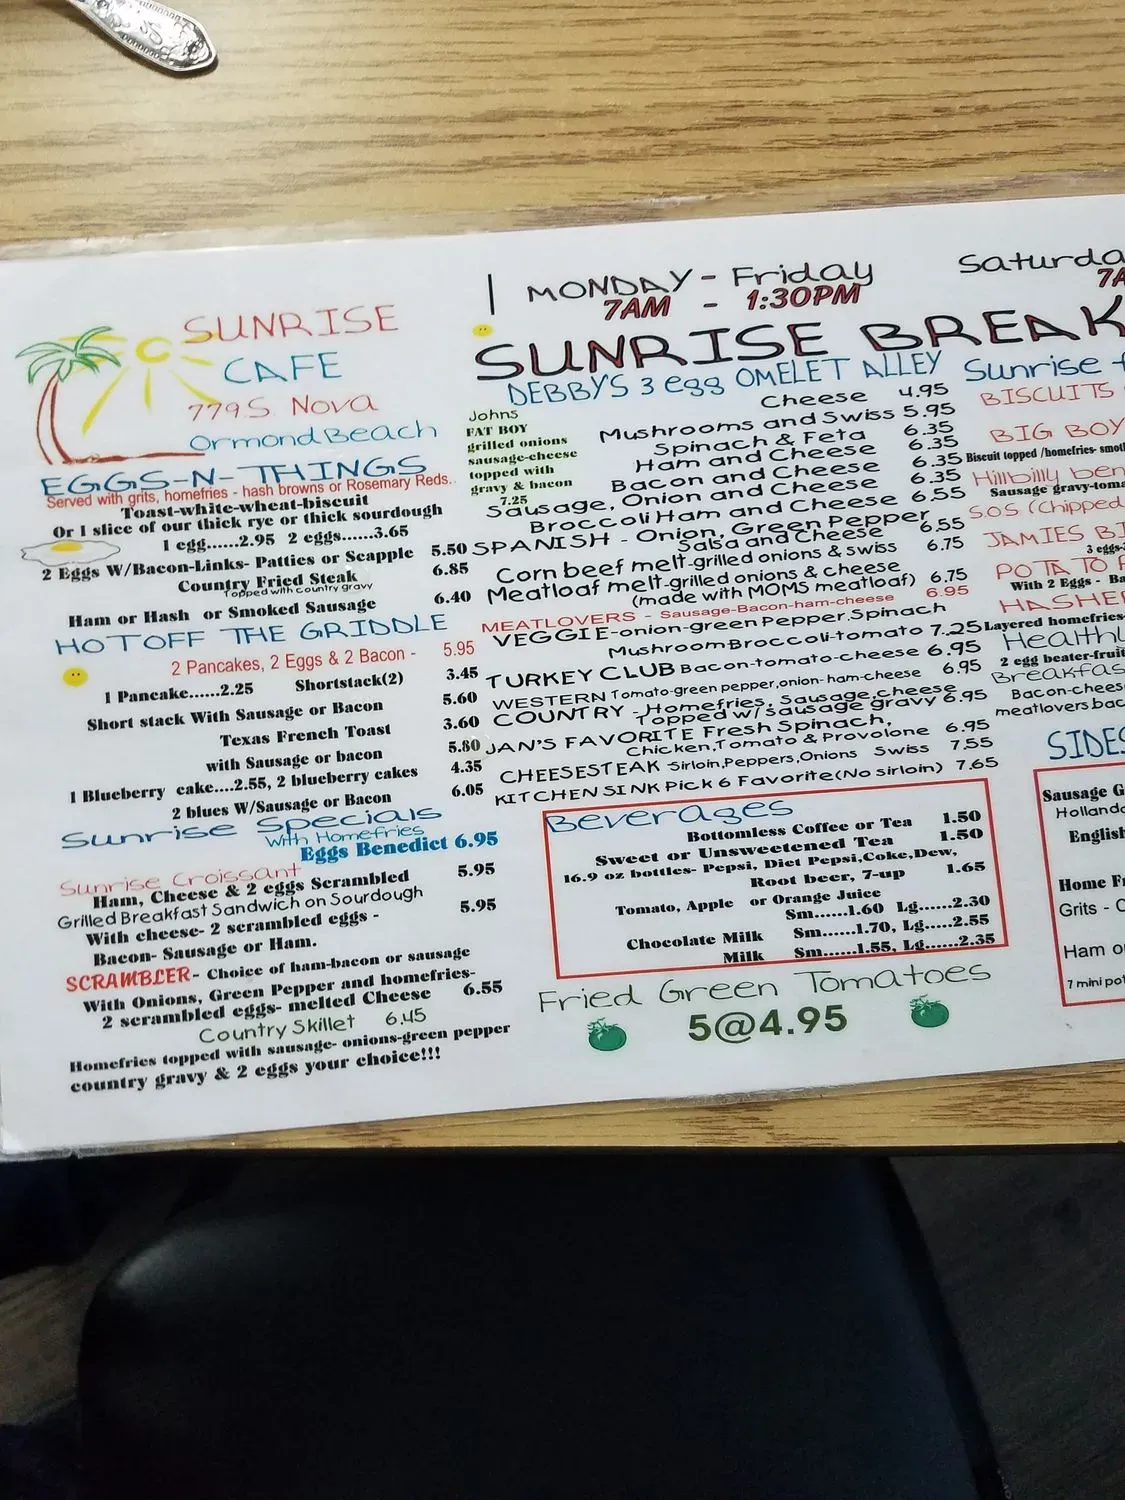 SUNRISE
CAFE
779 S. Nova
Ormond Beach
EGGS-N-THINGS
Served with grits, homefries - hash browns or Rosemary Reds..
Toast-white-wheat-biscuit
Or 1 slice of our thick rye or thick sourdough
1 egg......2.95 2 eggs......3.65
2 Eggs W/Bacon-Links- Patties or Scapple 5.50
Country Fried Steak 6.85
Topped with country gravy
Ham or Hash or Smoked Sausage 6.40
HOT OFF THE GRIDDLE
2 Pancakes, 2 Eggs & 2 Bacon - 5.95
1 Pancake......2.25 Shortstack(2) 3.45
Short stack With Sausage or Bacon 5.60
Texas French Toast 3.60
with Sausage or bacon 5.80
1 Blueberry cake....2.55, 2 blueberry cakes 4.35
2 blues W/Sausage or Bacon 6.05
Sunrise Specials
With Homefries
Eggs Benedict 6.95
Sunrise Croissant
Ham, Cheese & 2 eggs Scrambled 5.95
Grilled Breakfast Sandwich on Sourdough
With cheese- 2 scrambled eggs - 5.95
Bacon- Sausage or Ham.
SCRAMBLER- Choice of ham-bacon or sausage
With Onions, Green Pepper and homefries-
2 scrambled eggs- melted Cheese 6.55
Country Skillet 6.45
Homefries topped with sausage- onions-green pepper
country gravy & 2 eggs your choice!!!
MONDAY - Friday
7AM - 1:30PM
Saturda
7A
SUNRISE BREAK
DEBBY'S 3 egg OMELET ALLEY
Johns
FAT BOY
grilled onions
sausage-cheese
topped with
gravy & bacon
7.25
Cheese 4.95
Mushrooms and Swiss 5.95
Spinach & Feta 6.35
Ham and Cheese 6.35
Bacon and Cheese 6.35
Sausage, Onion and Cheese 6.35
Broccoli Ham and Cheese 6.55
SPANISH - Onion, Green Pepper
Salsa and Cheese 6.55
Corn beef melt-grilled onions & swiss 6.75
Meatloaf melt-grilled onions & cheese
(made with MOMS meatloaf) 6.75
MEATLOVERS - Sausage-Bacon-ham-cheese 6.95
VEGGIE-onion-green Pepper, Spinach
Mushroom Broccoli-tomato 7.25
TURKEY CLUB Bacon-tomato-cheese 6.95
WESTERN Tomato-green pepper,onion-ham-cheese 6.95
COUNTRY - Homefries, Sausage,cheese
Topped w/ sausage gravy 6.95
JAN'S FAVORITE Fresh Spinach,
Chicken,Tomato & Provolone 6.95
CHEESESTEAK Sirloin,Peppers,Onions Swiss 7.55
KITCHEN SINK Pick 6 Favorite(No sirloin) 7.65
Beverages
Bottomless Coffee or Tea 1.50
Sweet or Unsweetened Tea 1.50
16.9 oz bottles- Pepsi, Diet Pepsi,Coke,Dew,
Root beer, 7-up 1.65
Tomato, Apple or Orange Juice
Sm......1.60 Lg......2.30
Chocolate Milk Sm......1.70, Lg......2.55
Milk Sm......1.55, Lg......2.35
Fried Green Tomatoes
5@4.95
Sunrise f
BISCUITS
BIG BOY
Biscuit topped /homefries- smot
Hillbilly ben
Sausage gravy-toma
S.O.S (Chipped
JAMIES BI
3 eggs-
POTATO P
With 2 Eggs - Ba
HASHE
Layered homefries-
Healthy
2 egg beater-fruit
Breakfas
Bacon-chees
meatlovers bac
SIDES
Sausage G
Holland
English
Home Fr
Grits - C
Ham o
7 mini pot